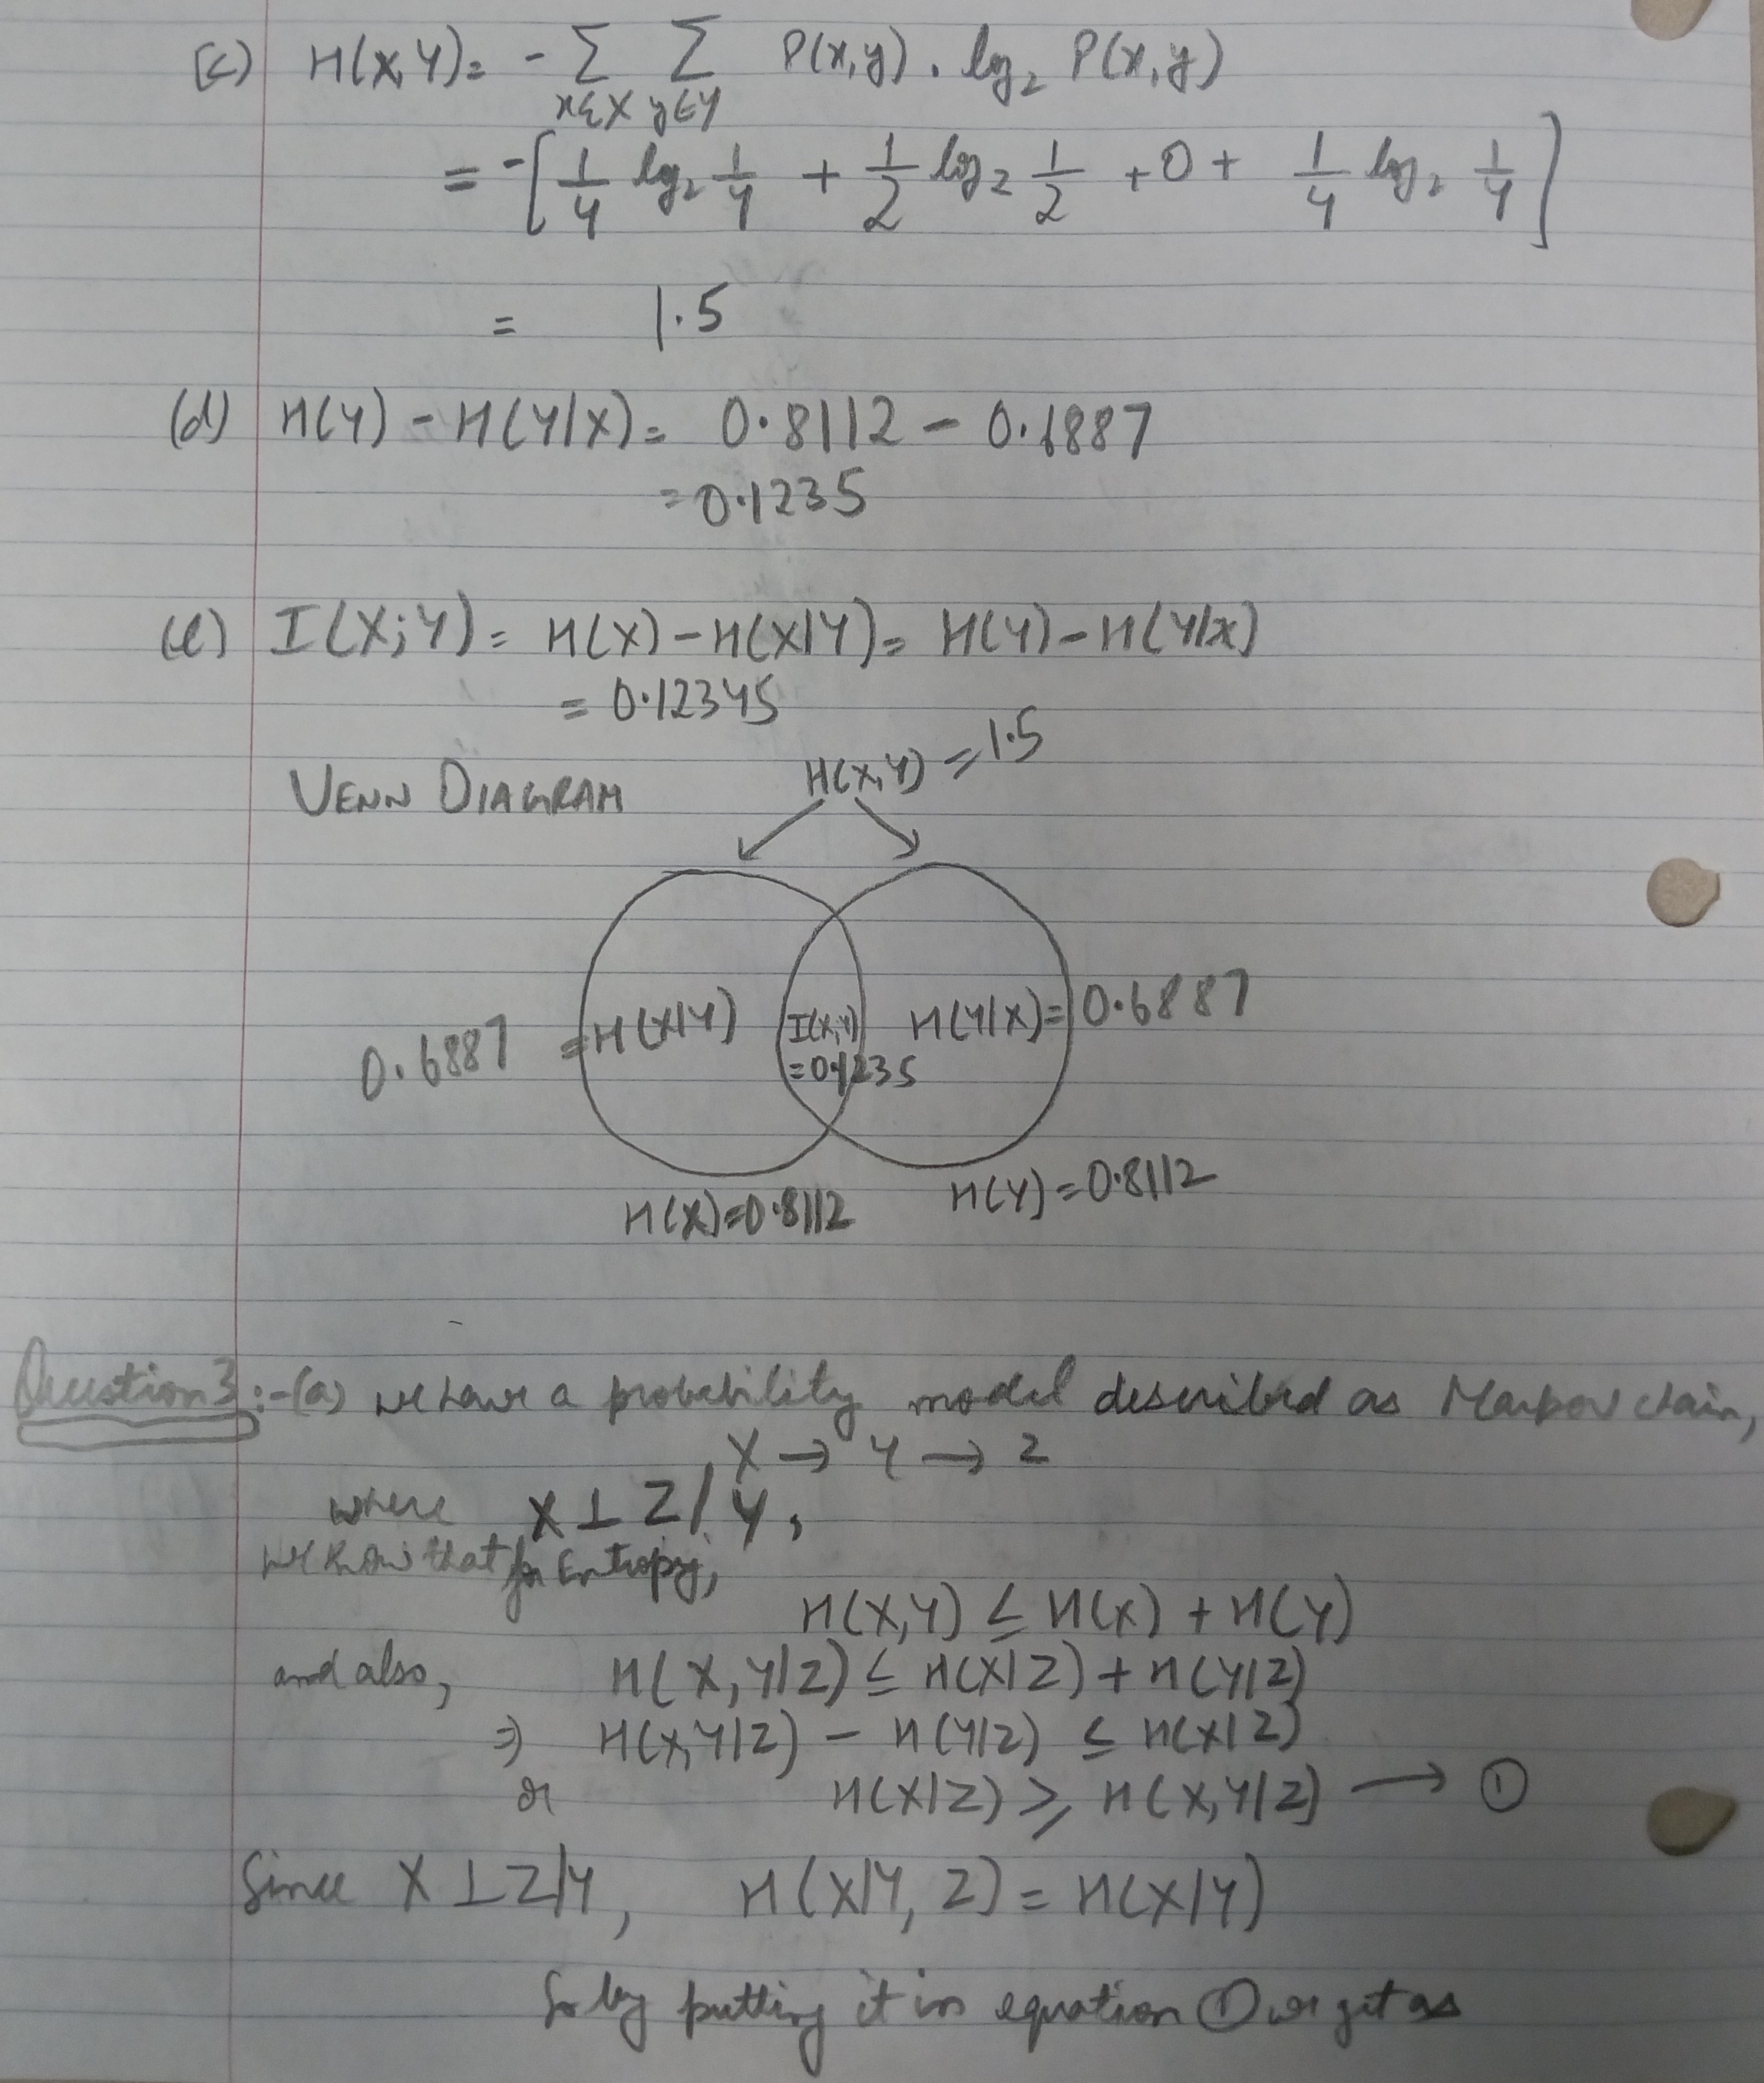 (c) H(X,Y) = - Σ Σ P(x,y) . log₂ P(x,y)
x∈X y∈Y
= -[1/4 log₂ 1/4 + 1/2 log₂ 1/2 + 0 + 1/4 log₂ 1/4]
= 1.5
(d) H(Y) - H(Y|X) = 0.8112 - 0.6887
= 0.1235
(e) I(X;Y) = H(X) - H(X|Y) = H(Y) - H(Y|X)
= 0.12345
H(X,Y) = 1.5
VENN DIAGRAM
0.6887 = H(X|Y) I(X,Y) = 0.1235 H(Y|X) = 0.6887
H(X) = 0.8112 H(Y) = 0.8112
Question 3 :- (a) we have a probability model described as Markov chain,
X → Y → Z
where X ⊥ Z / Y,
we know that for Entropy,
H(X,Y) ≤ H(X) + H(Y)
and also, H(X,Y|Z) ≤ H(X|Z) + H(Y|Z)
⇒ H(X,Y|Z) - H(Y|Z) ≤ H(X|Z)
or H(X|Z) ≥ H(X,Y|Z) → ①
Since X ⊥ Z|Y, H(X|Y, Z) = H(X|Y)
So by putting it in equation ① we get as